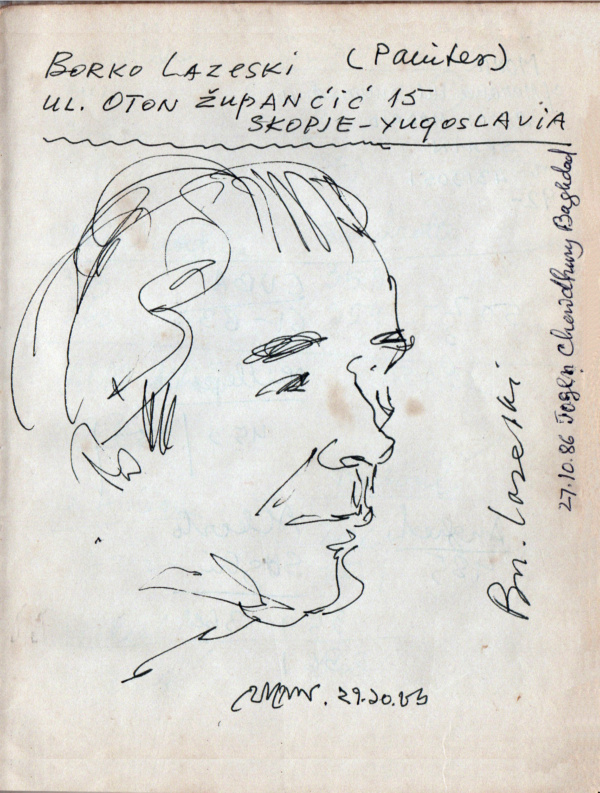 BORKO LAZESKI (Painter)
UL. OTON ŽUPANČIČ 15
SKOPJE-YUGOSLAVIA
27.10.86 Jogen Chowdhury Baghdad
Bn. Lazeski
29.10.86